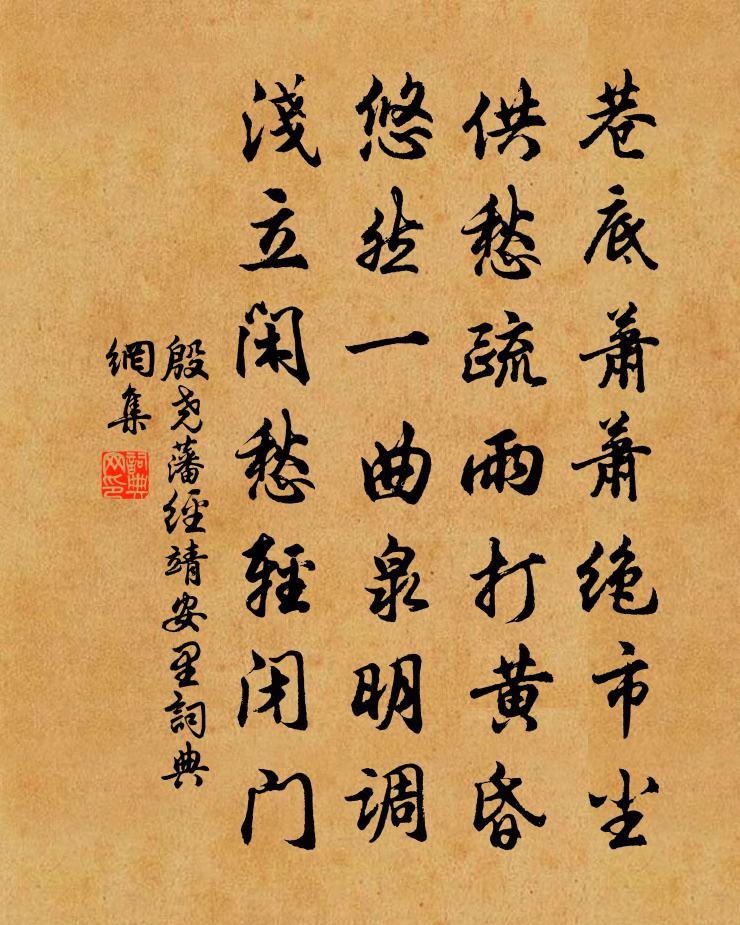 巷底萧萧绝市尘
供愁疏雨打黄昏
悠然一曲泉明调
淺立闲愁轻闭门
殷尧藩经靖安里詞典
網集
詞典
网印